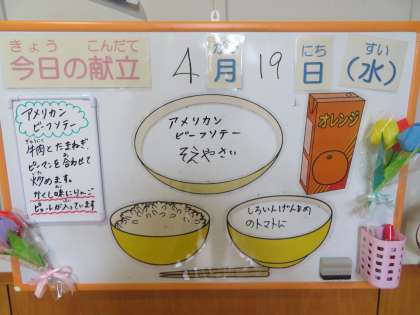 きょう こんだて
今日の献立
4 がつ 月 19 にち 日 すい (水)
アメリカン
ビーフソテー
牛肉とたまねぎ
ピーマンを合わせて
炒めます。
かくし味にりんご
ピューレが入っています
アメリカン
ビーフソテー
そえやさい
オレンジ
しろいんげんまめ
のトマトに